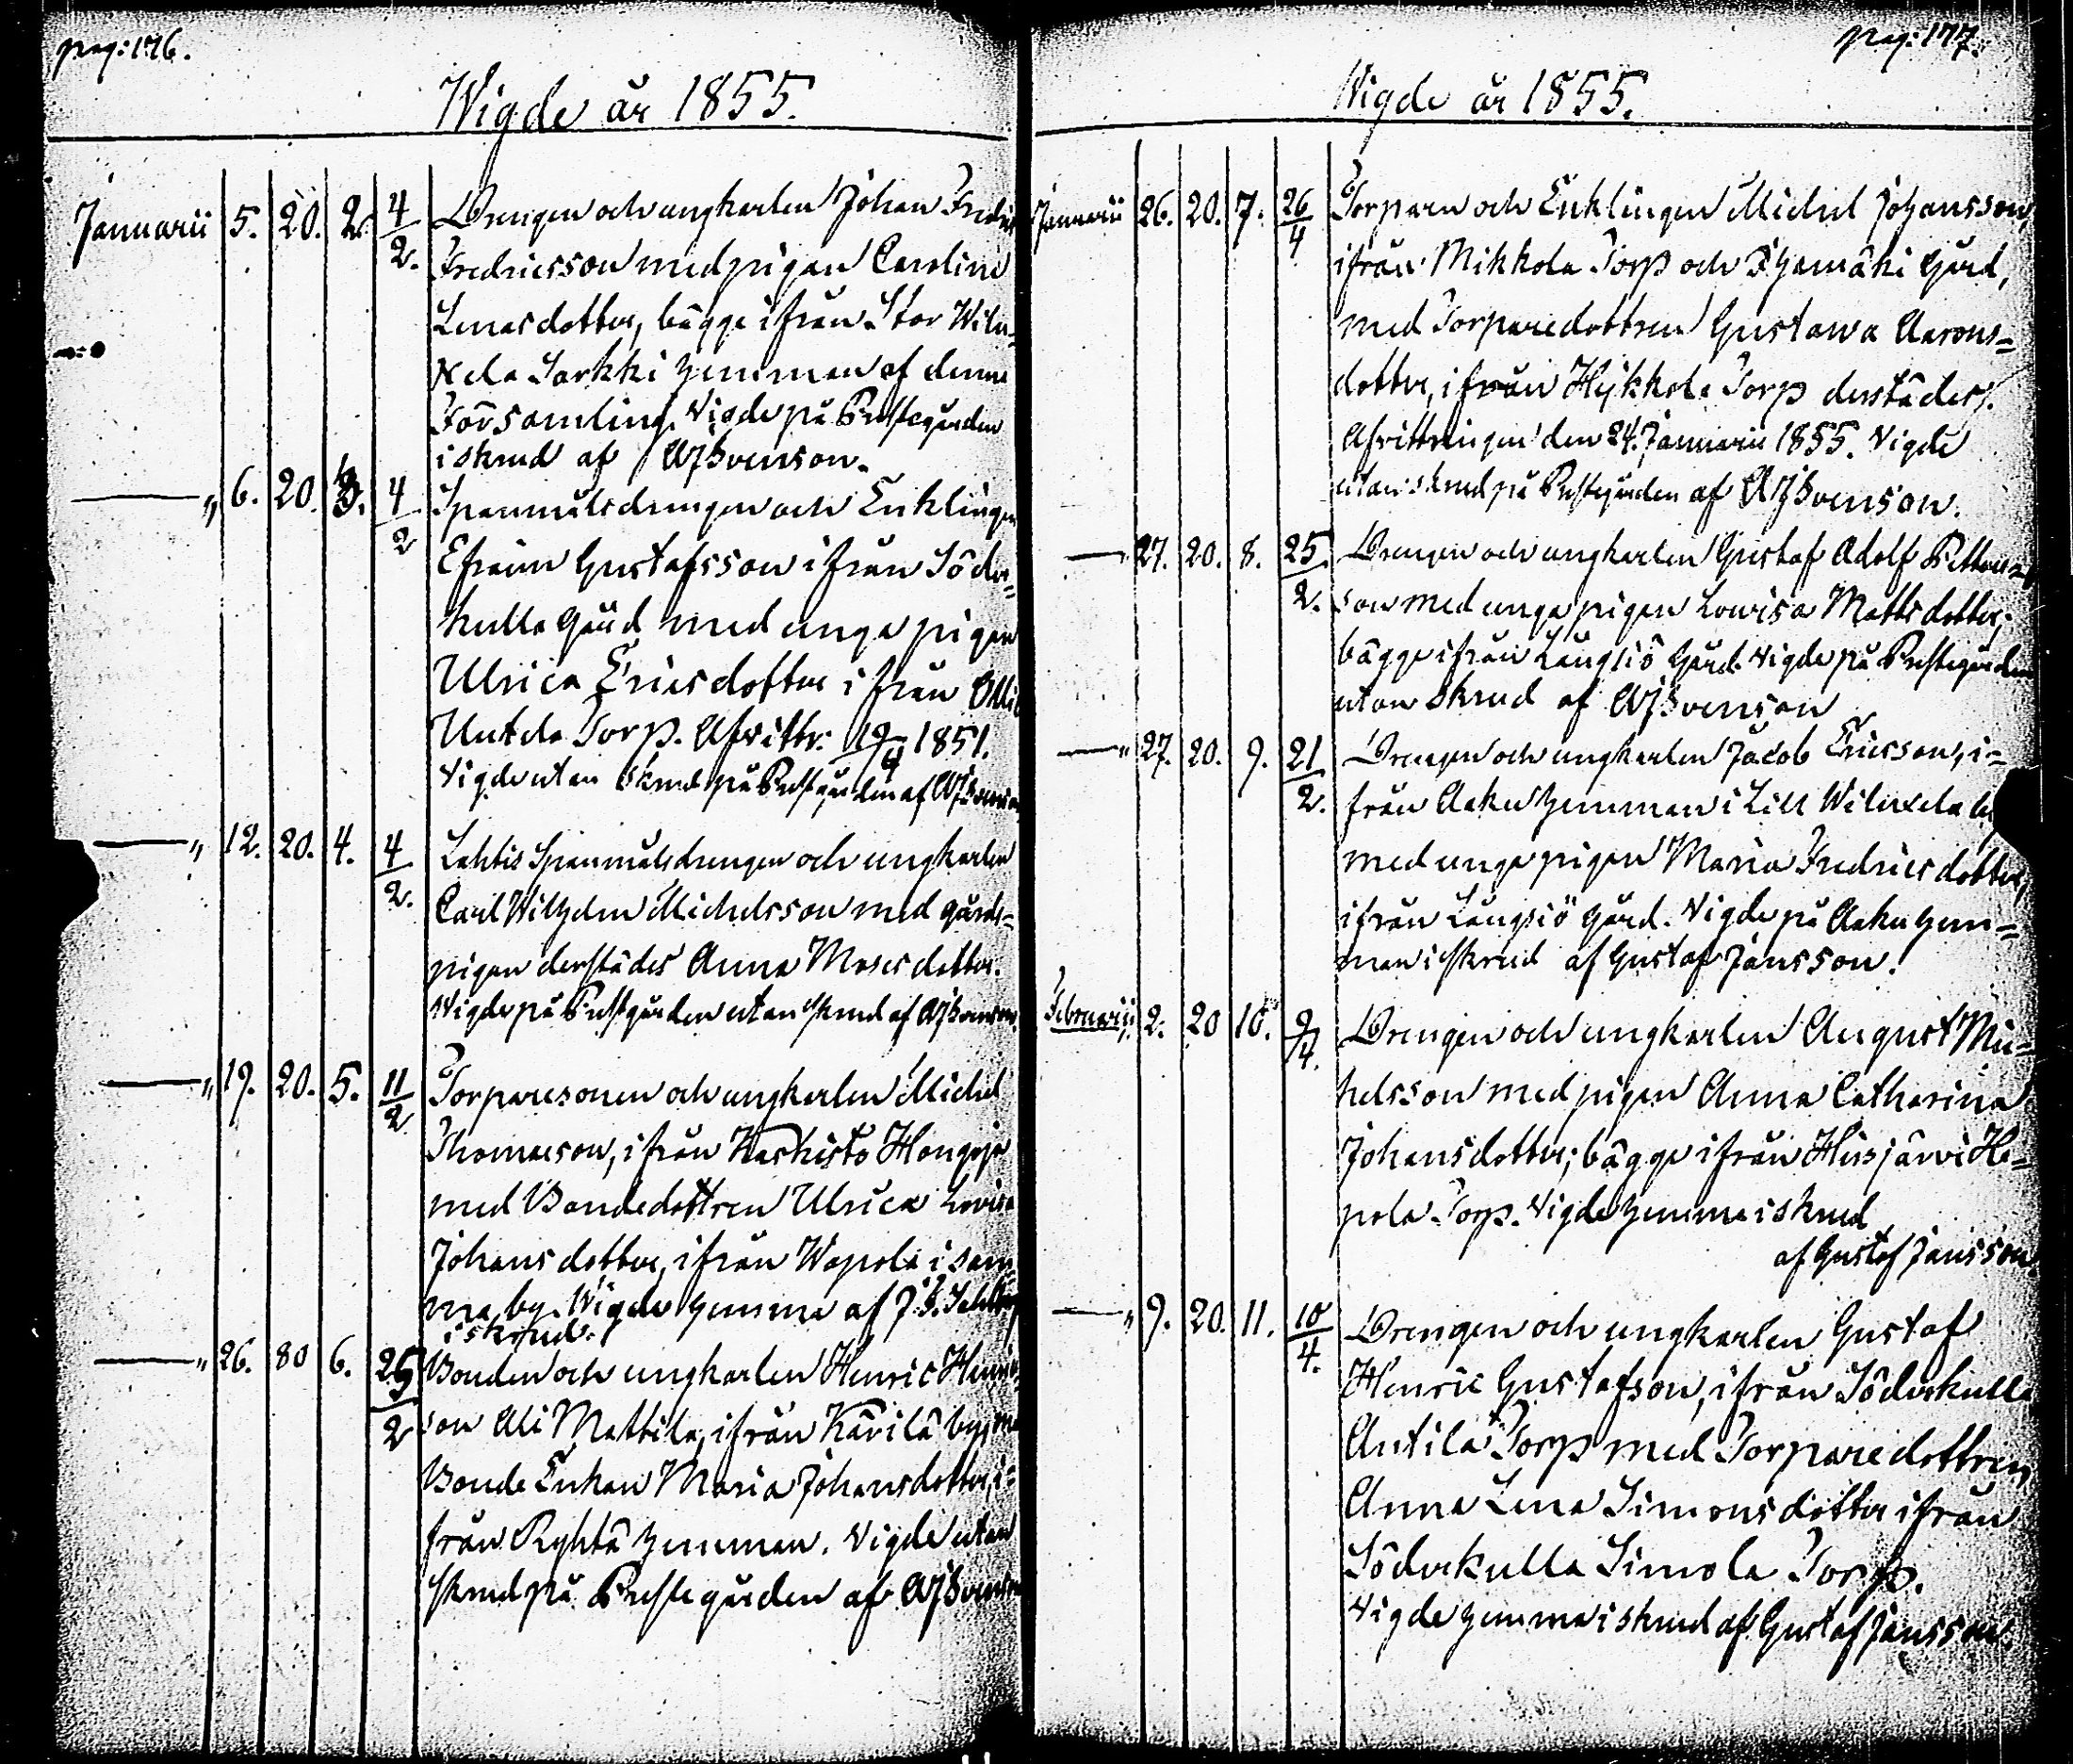 pag: 176.
Wigde år 1855.
Januarii 5. 20. 2. 4/2. Drengen och ungkarlen Johan Fredric
Fredricsson med pigan Carolina
Lenasdotter, bägge ifrån Stor Wilu-
xela Sarkki hemman af denna
Församling. Vigde på Prestegården
i skrud af AJSvenson.
—" 6. 20. 3. 4/2 Spanmålsdrengen och Enklingen
Efraim Gustafsson ifrån Söder=
kulla Gård med unga pigan
Ulrica Ericsdotter ifrån
Untola Torp. Afvittr: 1851.
Vigde utan skrud på Prestgården af AJSvenson
—" 12. 20. 4. 4/2. Lahtis Spanmålsdrengen och ungkarlen
Carl Wilhelm Michelsson med gårds=
pigan derstädes Anna Mosesdotter.
Vigde på Prestgården utan skrud af AJSvenson.
—" 19. 20. 5. 11/2 Torparesonen och ungkarlen Michel
Thomasson, ifrån Kaskisto Hongoja
med Bondedottren Ulrica Lovisa
Johansdotter, ifrån Wapola i sam-
ma by. Vigde hemma af J. F. Sahlberg
i skrud.
—" 26. 80 6. 25/2 Bonden och ungkarlen Henric Henric-
son Ali Mattila, ifrån Kärilä by, med
Bonde Enkan Maria Johansdotter, i=
från Ryhtä hemman. Vigde utan
skrud på Prestegården af AJSvenson
pag: 177.
Vigde år 1855.
Januarii 26. 20. 7. 26/4 Torparn och Enklingen Michel Johansson,
ifrån Mikkola Torp och Gård,
med Torparedottren Gustawa Aarons=
dotter, ifrån Hykkola Torp derstädes.
Afvittringen den 24. Januarii 1855. Vigde
utan skrud på Prestgården af AJSvenson.
—" 27. 20. 8. 25./2. Drengen och ungkarlen Gustaf Adolf Petters=
son med unga pigan Lowisa Mattsdotter;
bägge ifrån Långsiö Gård. Vigde på Prestegården
utan skrud af AJSvenson
—" 27. 20. 9. 21/2. Drengen och ungkarlen Jacob Ericsson, i=
från Aaku hemman i Lill Wiluxela by
med unga pigan Maria Fredricsdotter,
ifrån Långsiö Gård. Vigde på Aaku hem=
man i skrud af Gustaf Jansson.
Februarii 2. 20 10. 9/4. Drengen och ungkarlen August Mic=
helsson med pigan Anna Catharina
Johansdotter; bägge ifrån Hirsjärvi He=
pola Torp. Vigde hemma i skrud
af Gustaf Jansson.
—" 9. 20. 11. 10/4. Drengen och ungkarlen Gustaf
Henric Gustafson, ifrån Söderkulla
Antila Torp med Torparedottren
Anna Lena Simonsdotter ifrån
Söderkulla Simola Torp.
Vigde hemma i skrud af Gustaf Jansson.